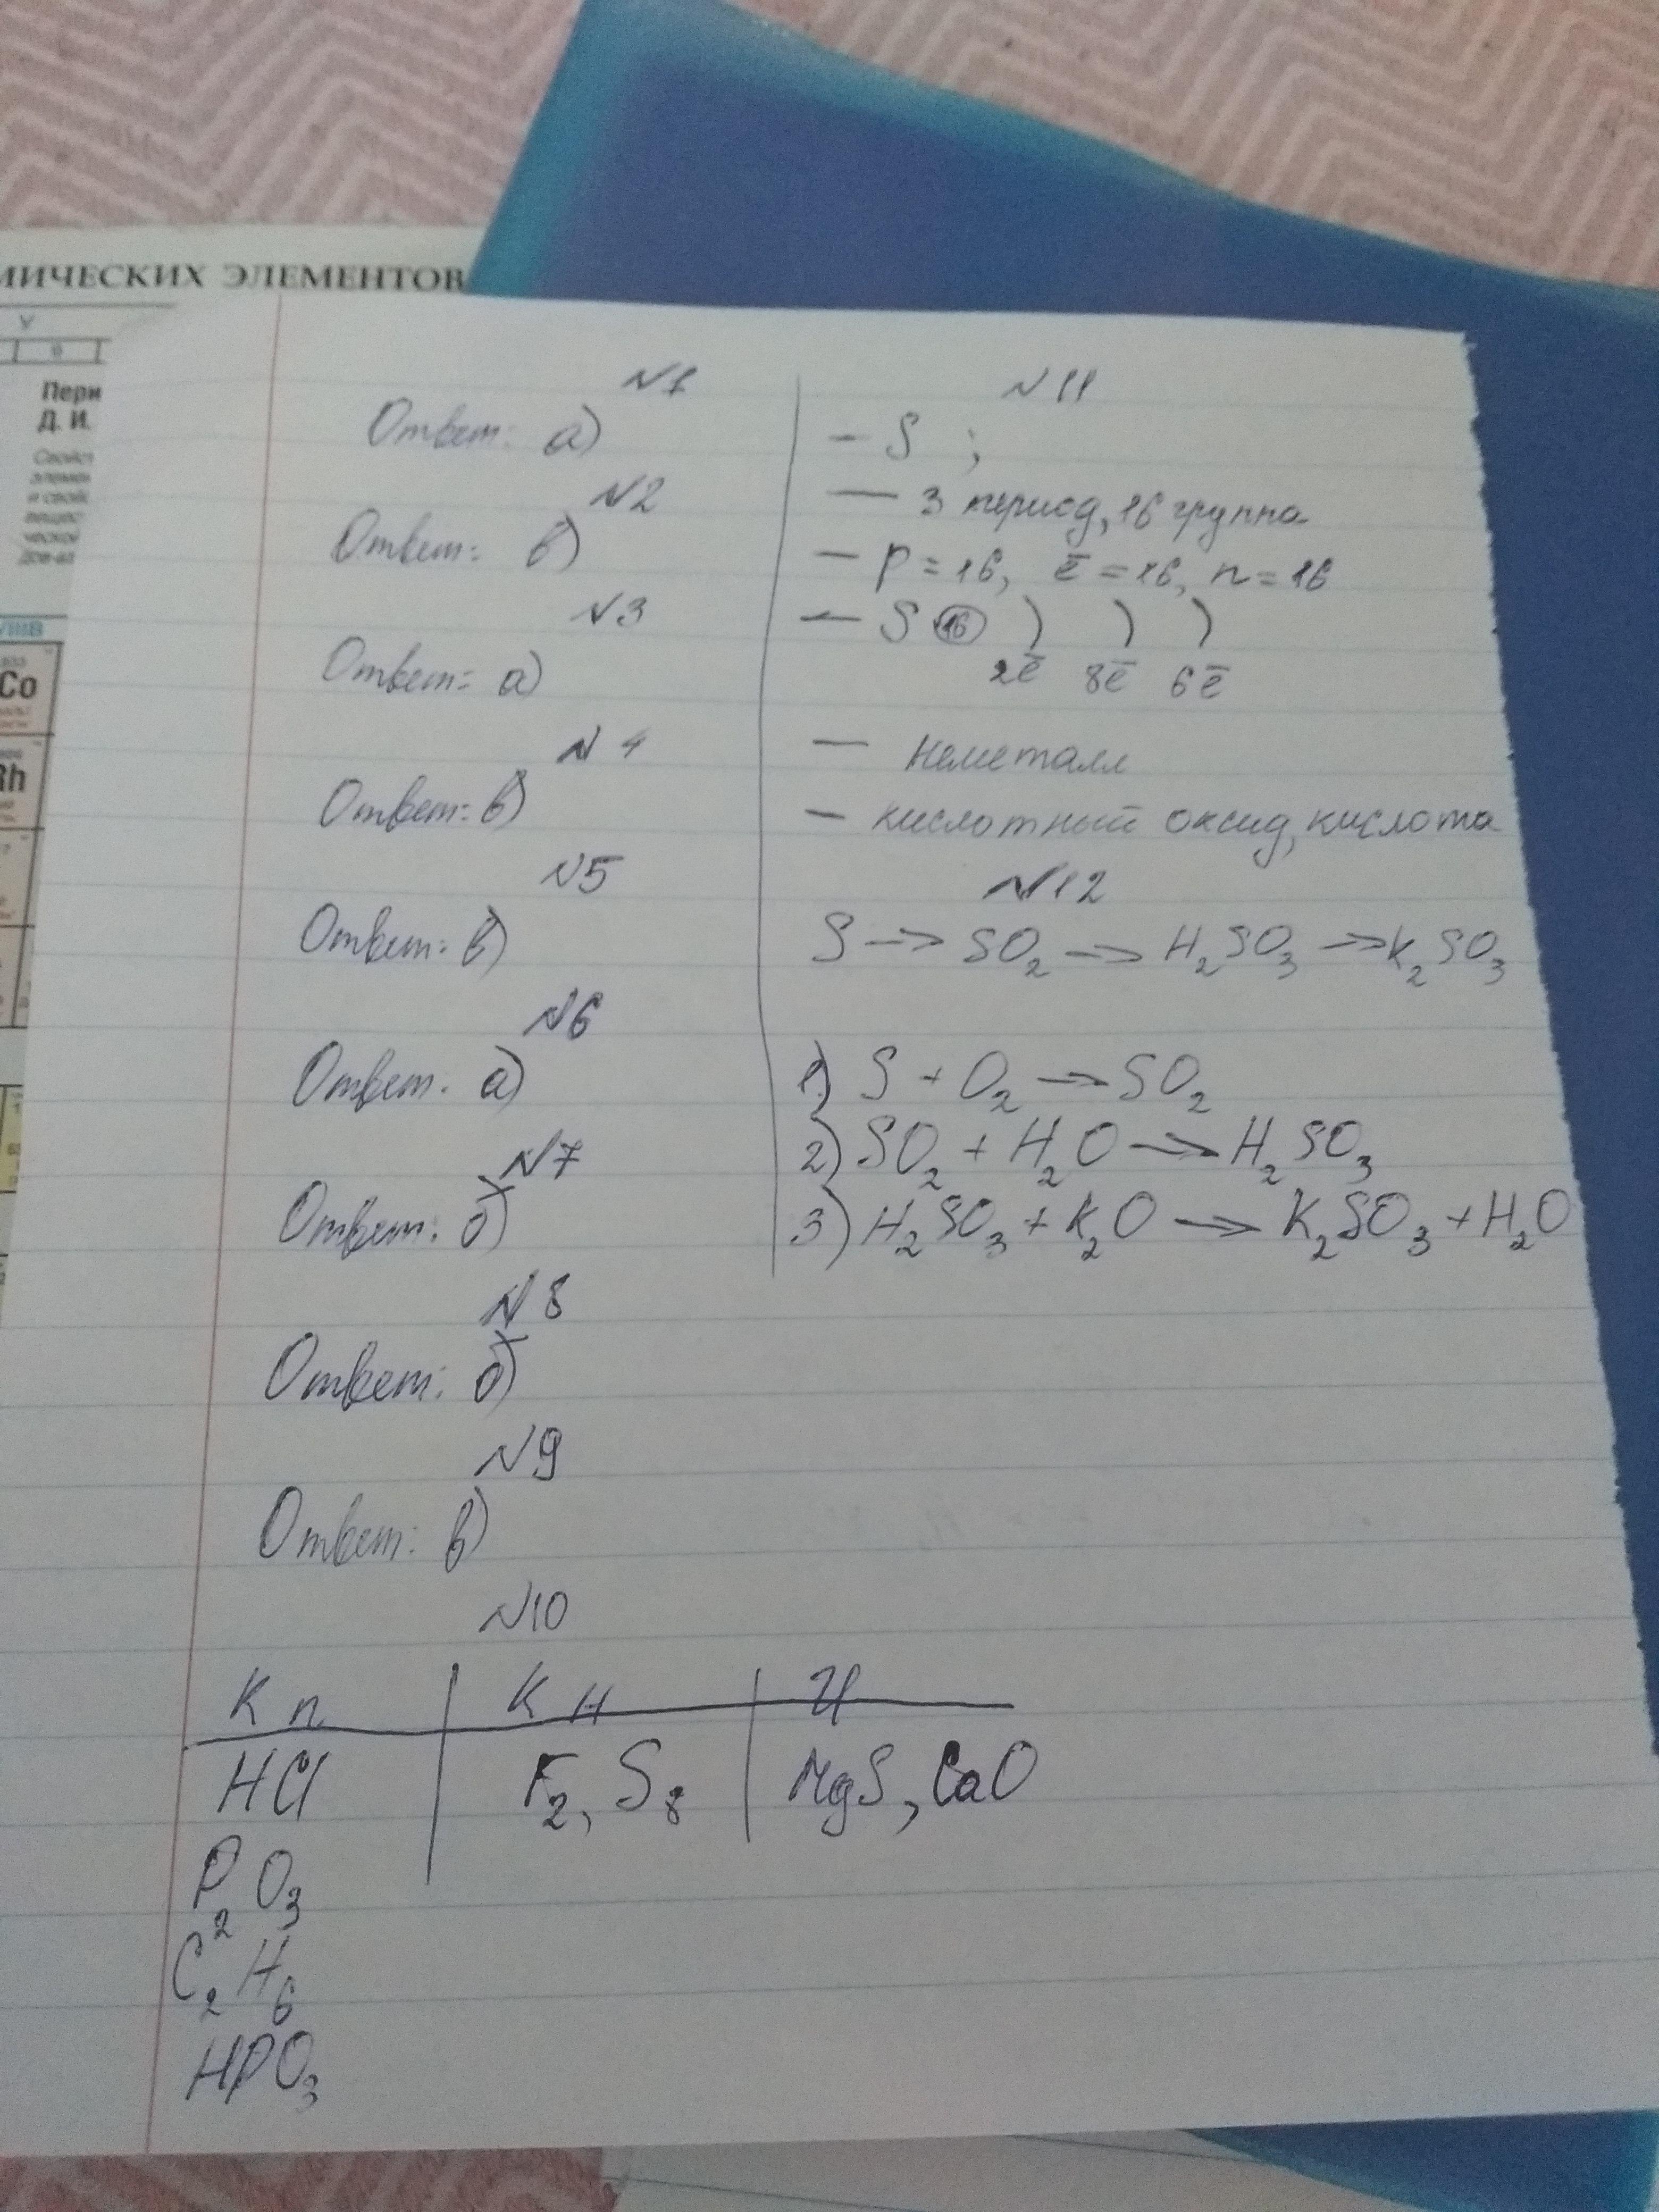 МИЧЕСКИХ ЭЛЕМЕНТОВ
V
Пери
Д. И.
VIIIB
Co
Rh
N1
Ответ: а)
N2
Ответ: в)
N3
Ответ: а)
N4
Ответ: в)
N5
Ответ: в)
N6
Ответ. а)
N7
Ответ: б)
N8
Ответ: б)
N9
Ответ: в)
N10
Кп | Кн | И
HCl | F₂, S₈ | MgS, CaO
P₂O₃
C₂H₆
HPO₃
N11
– S ;
– 3 период, 16 группа
– p = 16, ē = 16, n = 16
– S (16) ) ) )
2ē 8ē 6ē
– неметалл
– кислотный оксид, кислота
N12
S → SO₂ → H₂SO₃ → K₂SO₃
1) S + O₂ → SO₂
2) SO₂ + H₂O → H₂SO₃
3) H₂SO₃ + K₂O → K₂SO₃ + H₂O